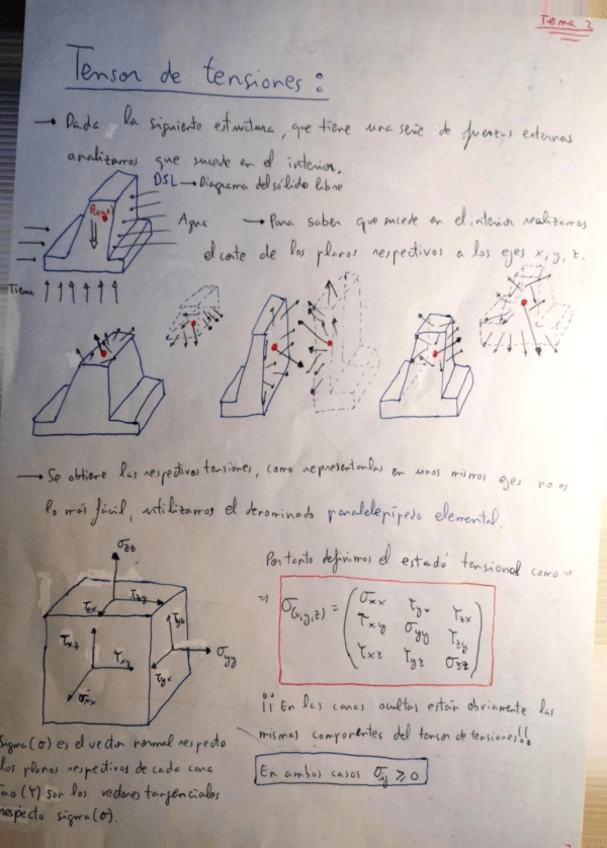 Tema 2
Tensor de tensiones:
→ Dada la siguiente estructura, que tiene una serie de fuerzas externas
analizamos que sucede en el interior.
DSL → Diagrama del sólido libre
Agua → Para saber que sucede en el interior realizamos
el corte de los planos respectivos a los ejes x, y, z.
→ Se obtiene las respectivas tensiones, como representarlas en unos mismos ejes no es
lo más fácil, utilizamos el denominado paralelepípedo elemental.
Por tanto definimos el estado tensional como ⇒
σzz
τzy
τzx
τyz
τxz
τxy
σyy
τyx
σxx
⇒ σ(x,y,z) = ( σxx τyx τzx
τxy σyy τzy
τxz τyz σzz )
¡¡ En las caras ocultas están obviamente las
mismas componentes del tensor de tensiones!!
En ambos casos σij ≥ 0
Sigma (σ) es el vector normal respecto
los planos respectivos de cada cara
Tao (τ) son los vectores tangenciales
respecto sigma (σ).